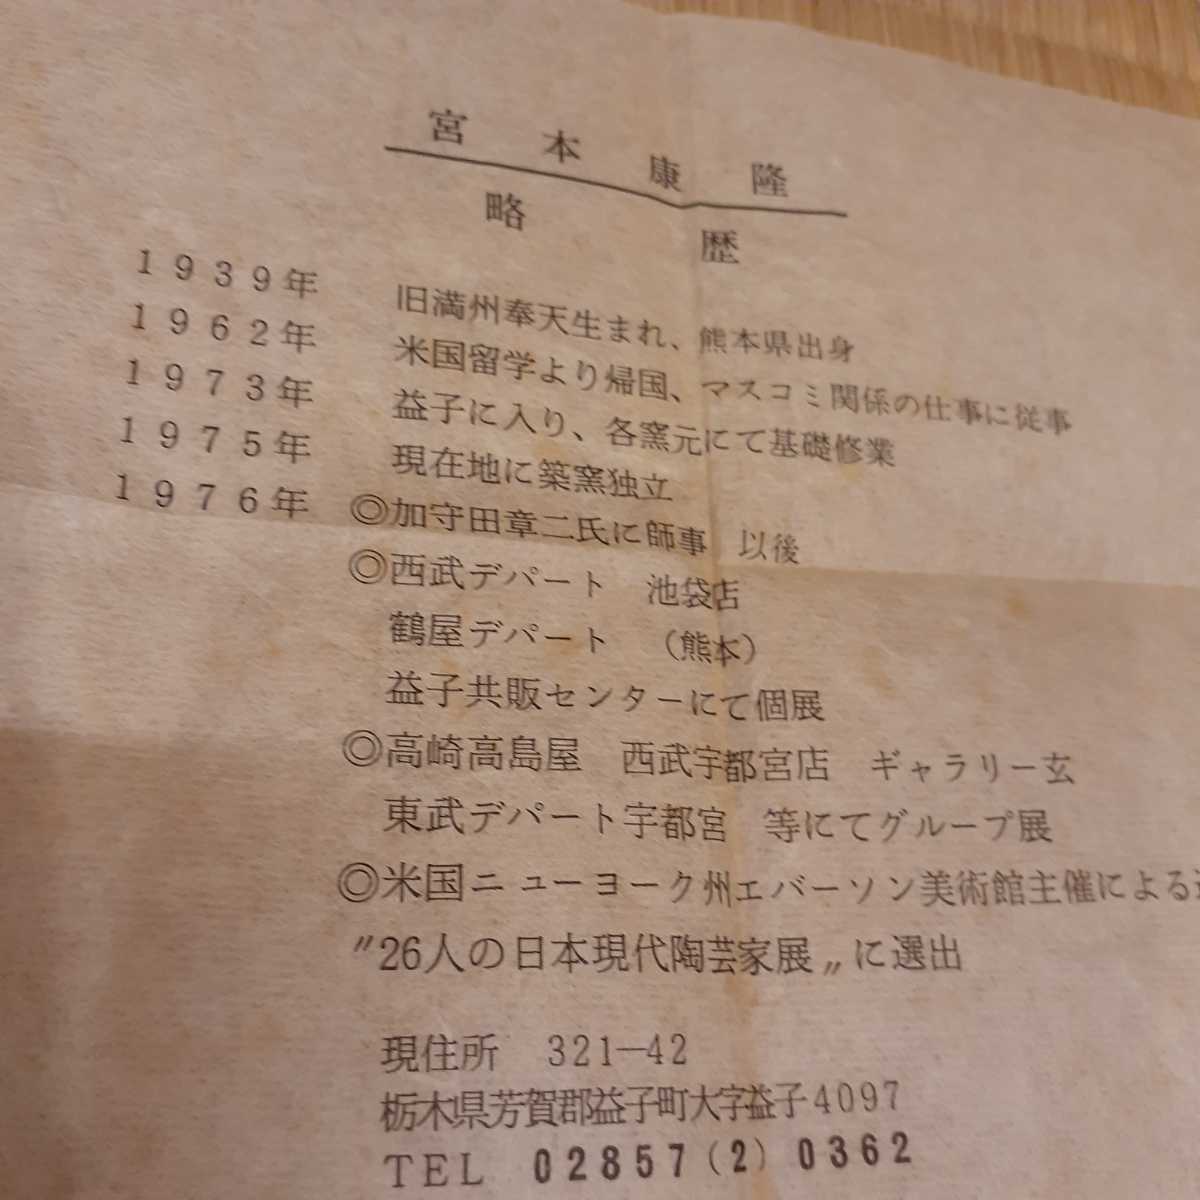 宮本康隆
略歴
1939年 旧満州奉天生まれ、熊本県出身
1962年 米国留学より帰国、マスコミ関係の仕事に従事
1973年 益子に入り、各窯元にて基礎修業
1975年 現在地に築窯独立
1976年 ◎加守田章二氏に師事 以後
◎西武デパート 池袋店
鶴屋デパート (熊本)
益子共販センターにて個展
◎高崎高島屋 西武宇都宮店 ギャラリー玄
東武デパート宇都宮 等にてグループ展
◎米国ニューヨーク州エバーソン美術館主催による
〃26人の日本現代陶芸家展〃に選出
現住所 321—42
栃木県芳賀郡益子町大字益子4097
TEL 02857(2)0362